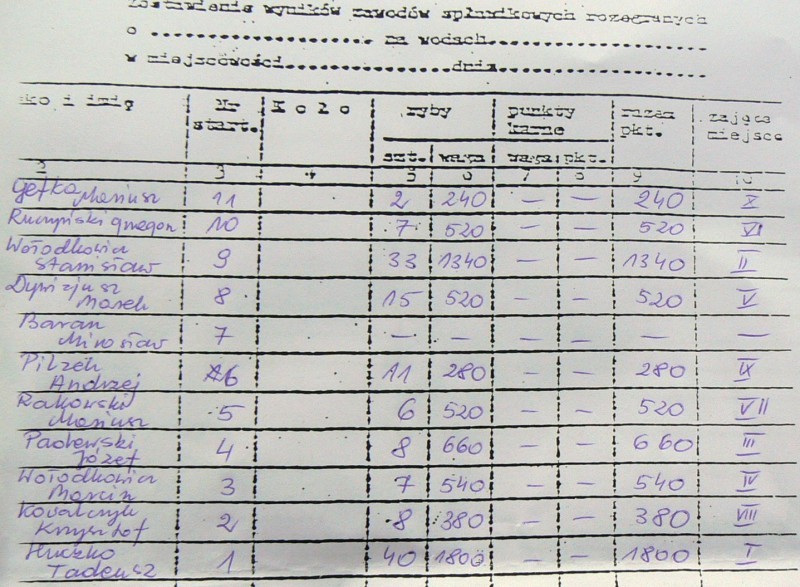 Zestawienie wyników zawodów spławikowych rozegranych
o ........................ na wodach........................
w miejscowości................dnia........................
sko i imię Nr start. Koło ryby punkty karne razem pkt. zające miejsce
szt. waga waga pkt.
2 3 4 5 6 7 8 9 10
Gefka Mariusz 11 2 240 — — 240 X
Ruczyński Grzegorz 10 7 520 — — 520 VI
Wołodkowicz Stanisław 9 33 1340 — — 1340 II
Dynizjusz Marek 8 15 520 — — 520 V
Baran Mirosław 7 — — — — — —
Pilzek Andrzej 6 11 280 — — 280 IX
Rakowski Mariusz 5 6 520 — — 520 VII
Padewski Józef 4 8 660 — — 660 III
Wołodkowicz Marcin 3 7 540 — — 540 IV
Kowalczyk Krzysztof 2 8 380 — — 380 VIII
Huczko Tadeusz 1 40 1800 — — 1800 I